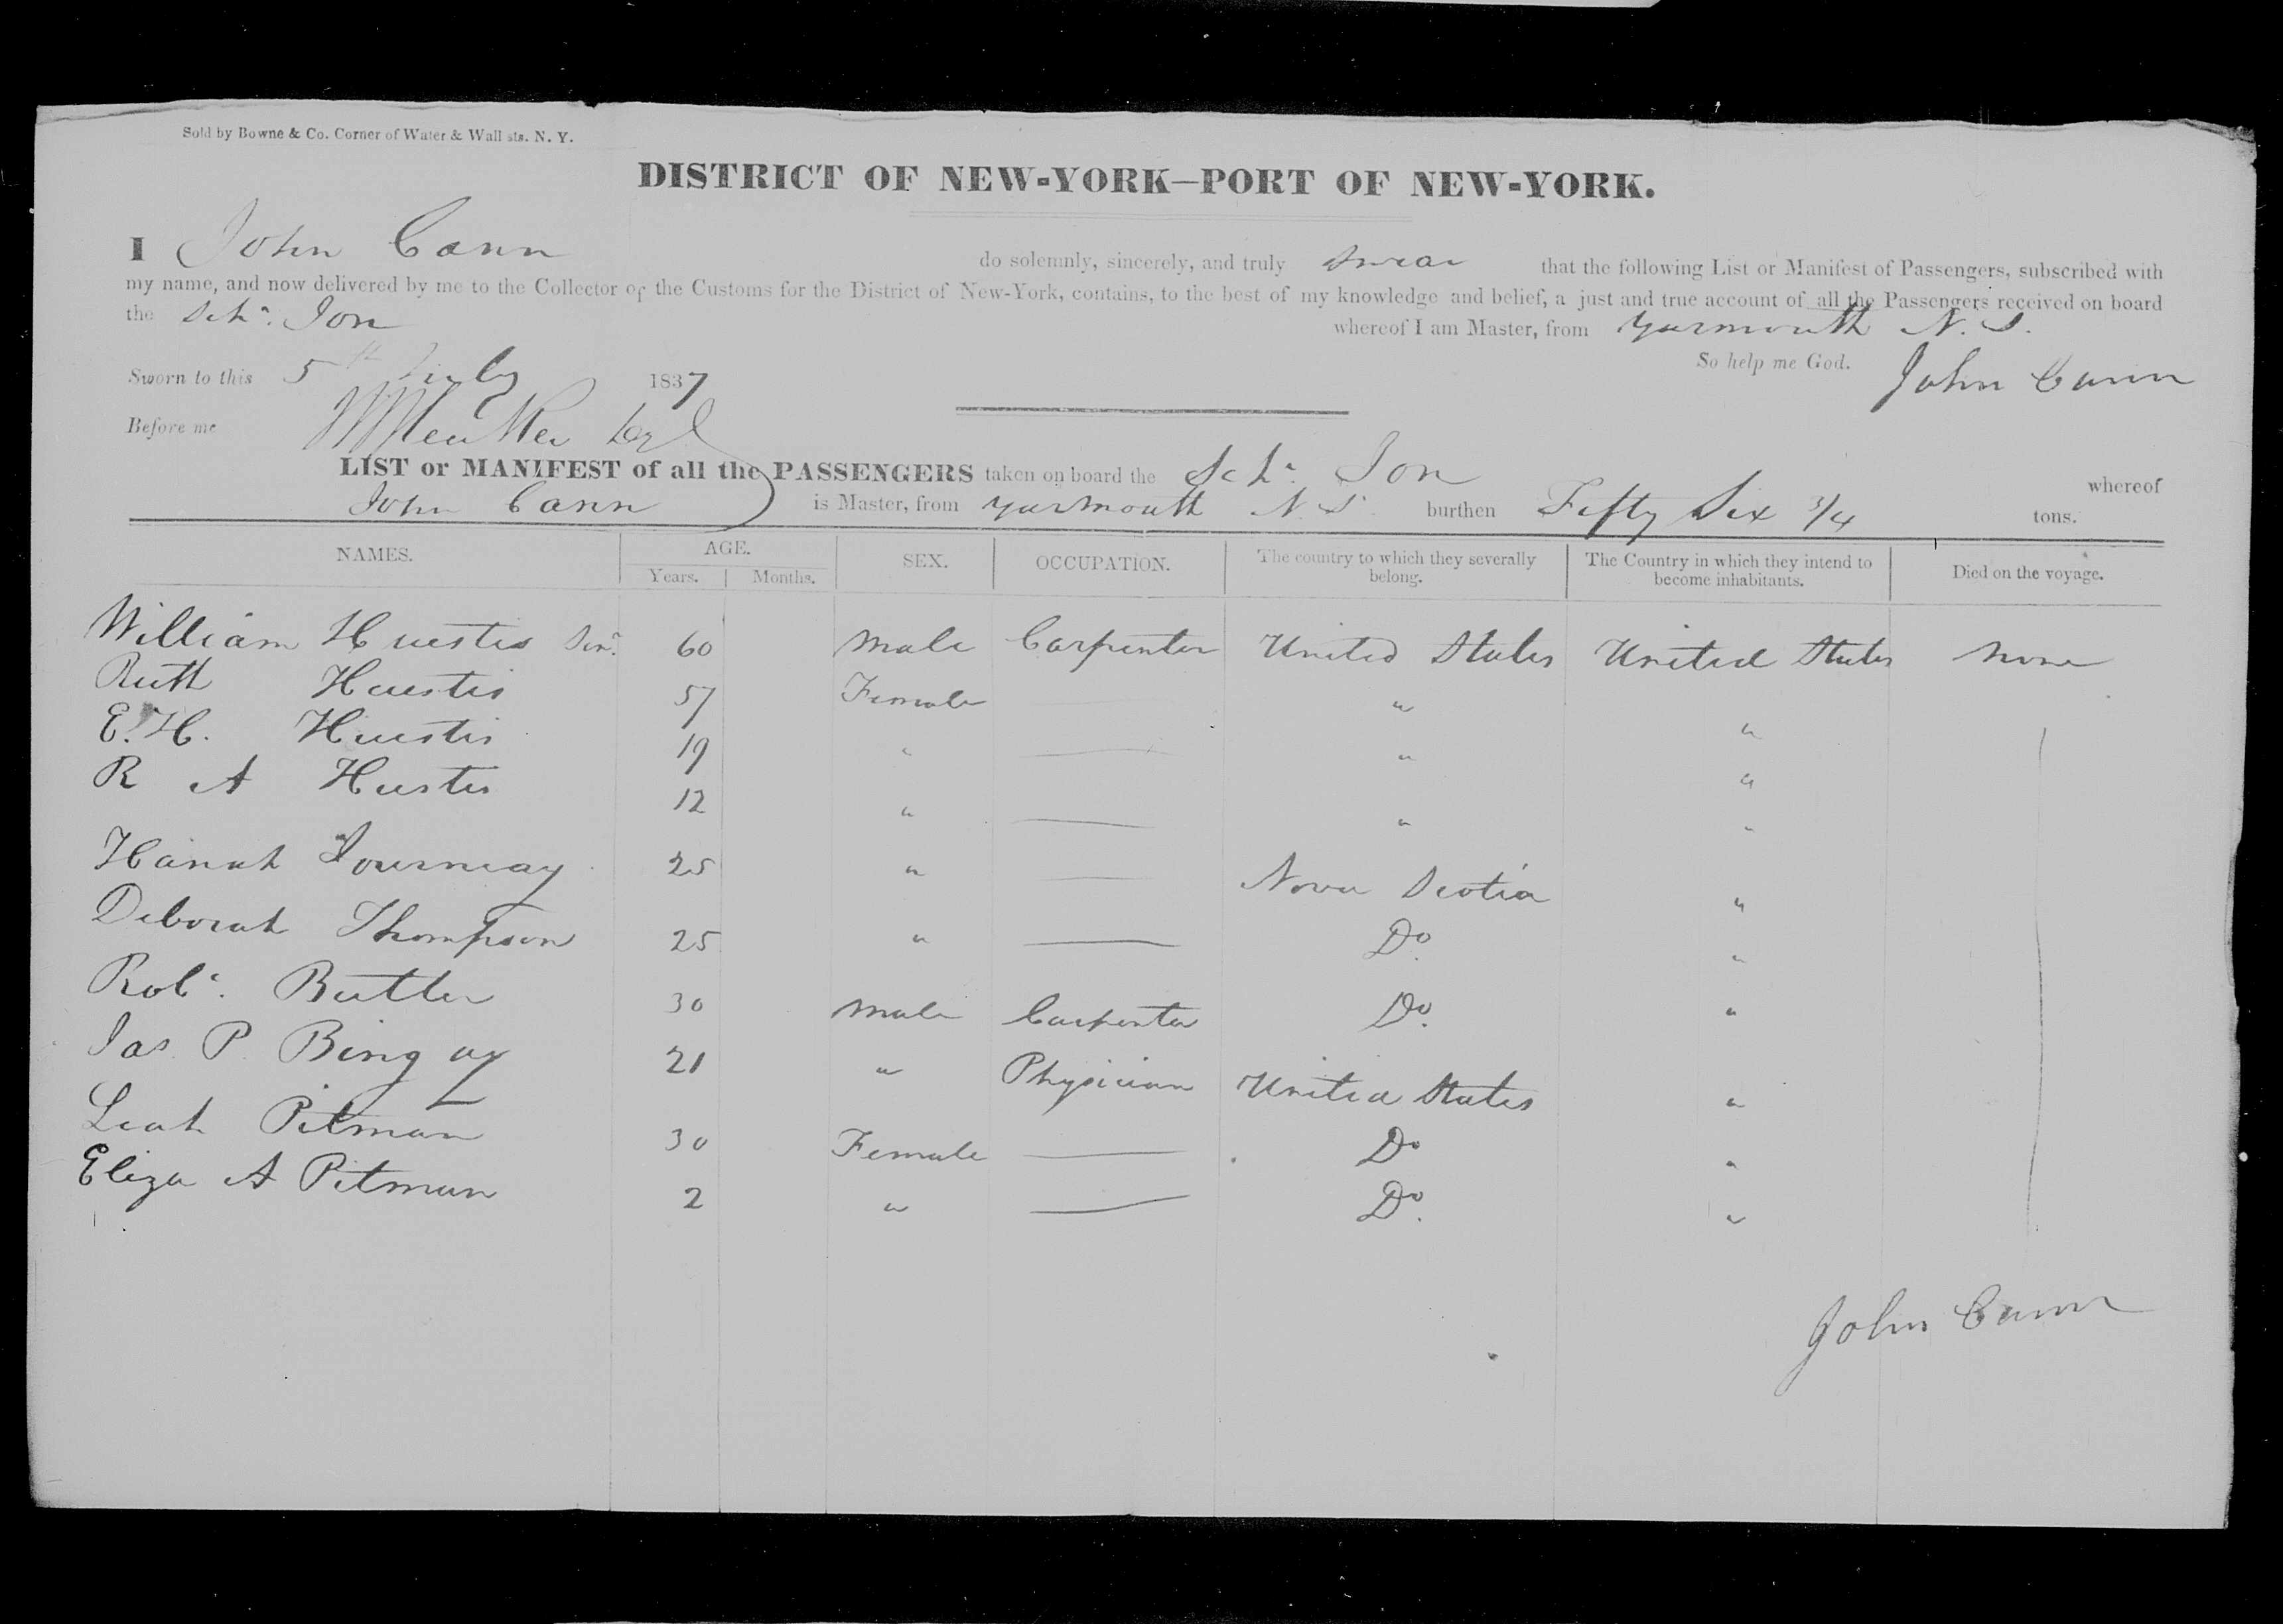 Sold by Bowne & Co. Corner of Water & Wall sts. N. Y.
DISTRICT OF NEW-YORK—PORT OF NEW-YORK.
I John Cann do solemnly, sincerely, and truly swear that the following List or Manifest of Passengers, subscribed with
my name, and now delivered by me to the Collector of the Customs for the District of New-York, contains, to the best of my knowledge and belief, a just and true account of all the Passengers received on board
the Schr. Ion whereof I am Master, from Yarmouth N. S.
So help me God. John Cann
Sworn to this 5th July 1837
Before me
LIST or MANIFEST of all the PASSENGERS taken on board the Schr. Ion whereof
John Cann is Master, from Yarmouth N S burthen Fifty Six 3/4 tons.
NAMES. AGE. SEX. OCCUPATION. The country to which they severally belong. The Country in which they intend to become inhabitants. Died on the voyage.
Years. Months.
William Huestis Senr. 60 Male Carpenter United States United States None
Ruth Huestis 57 Female — " "
E. H. Huestis 19 " — " "
R A Huestis 12 " — " "
Hanah Tourneay 25 " — Nova Scotia "
Deborah Thompson 25 " — Do. "
Robt. Butler 30 Male Carpenter Do. "
Jas. P. Bingay 21 " Physician United States "
Leah Pitman 30 Female — Do "
Eliza A Pitman 2 " — Do. "
John Cann